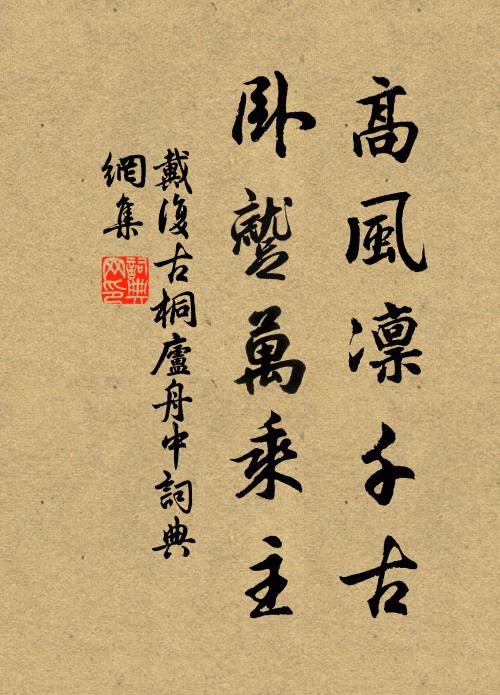 高風凛千古
臥蹵萬乘主
戴復古桐廬舟中詞典
網集
詞典網印